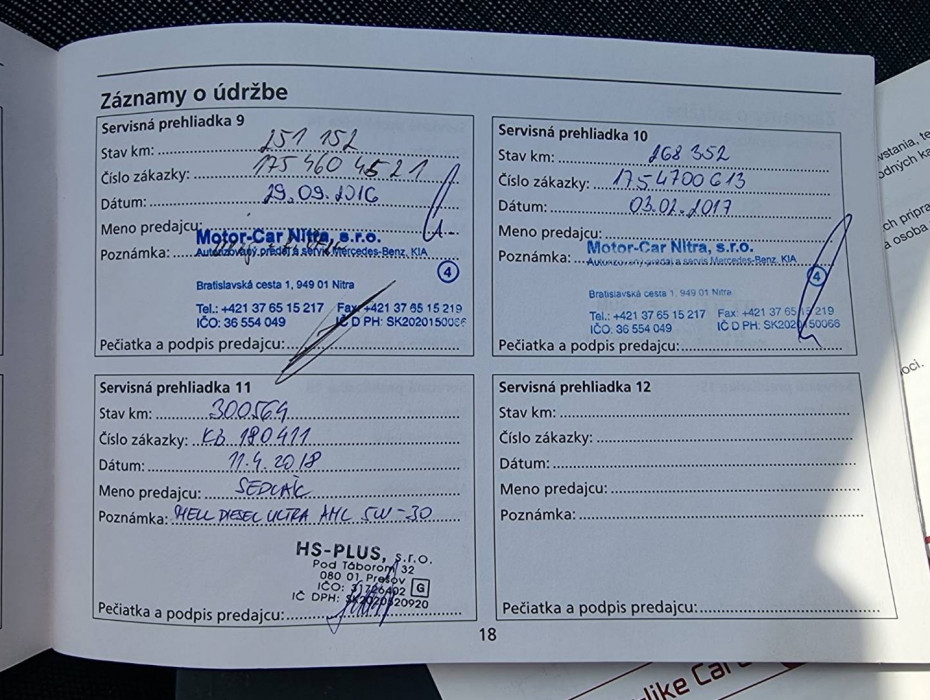 Záznamy o údržbe
Servisná prehliadka 9
Stav km: 251 152
Číslo zákazky: 175 460 4521
Dátum: 29.09.2016
Meno predajcu:
Poznámka:
Motor-Car Nitra, s.r.o.
Autorizovaný predaj a servis Mercedes-Benz, KIA
4
Bratislavská cesta 1, 949 01 Nitra
Tel.: +421 37 65 15 217 Fax: +421 37 65 15 219
IČO: 36 554 049 IČ D PH: SK2020150066
Pečiatka a podpis predajcu:
Servisná prehliadka 10
Stav km: 268 352
Číslo zákazky: 1754700613
Dátum: 03.02.2017
Meno predajcu:
Poznámka:
Motor-Car Nitra, s.r.o.
Autorizovaný predaj a servis Mercedes-Benz, KIA
4
Bratislavská cesta 1, 949 01 Nitra
Tel.: +421 37 65 15 217 Fax: +421 37 65 15 219
IČO: 36 554 049 IČ D PH: SK2020150066
Pečiatka a podpis predajcu:
Servisná prehliadka 11
Stav km: 300564
Číslo zákazky: KB 180411
Dátum: 11.4.2018
Meno predajcu: SEDLÁK
Poznámka: DIESEL ULTRA 5W-30
HS-PLUS, s.r.o.
Pod Táborom 32
080 01 Prešov
IČO: 31726402 G
IČ DPH:
Pečiatka a podpis predajcu:
Servisná prehliadka 12
Stav km:
Číslo zákazky:
Dátum:
Meno predajcu:
Poznámka:
Pečiatka a podpis predajcu:
18
vstania, te
ch pripra
a osoba
oci.